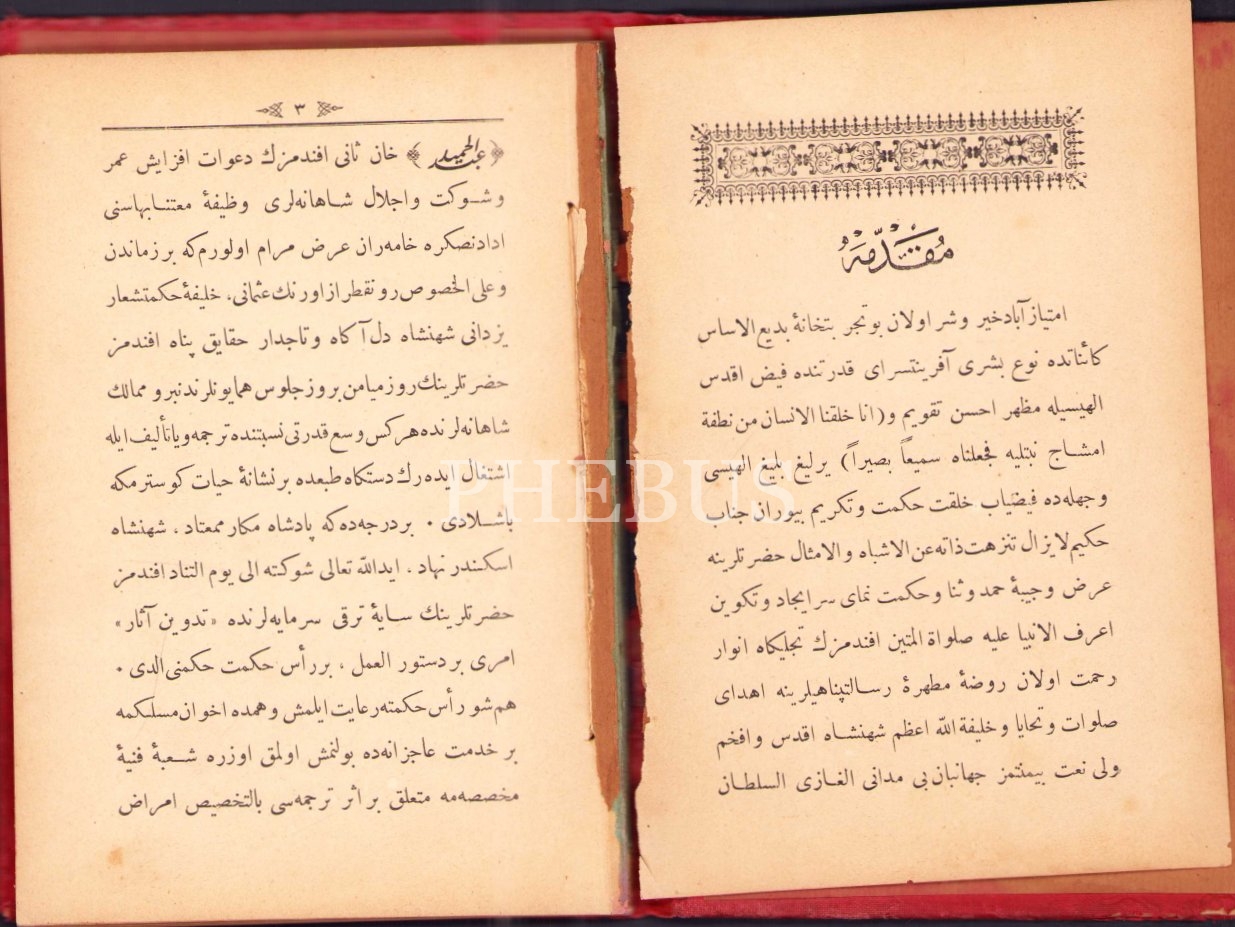 مُقَدِّمَه
امتياز آباد خير وشر اولان بو تجر بتخانهٔ بديع الاساس
كائناتده نوع بشرى آفرينتسراى قدرتنده فيض اقدس
الهيسيله مظهر احسن تقويم و(انا خلقنا الانسان من نطفة
امشاج نبتليه فجعلناه سميعاً بصيراً) يرليغ بليغ الهيسى
وجهله ده فيضياب خلقت حكمت وتكريم بيوران جناب
حكيم لايزال تنزهت ذاته عن الاشباه والامثال حضرتلرينه
عرض وجيبهٔ حمد وثنا وحكمت نماى سر ايجاد وتكوين
اعرف الانبيا عليه صلواة المتين افندمزك تجليكاه انوار
رحمت اولان روضهٔ مطهرهٔ رسالتپناهيلرينه اهداى
صلوات وتحايا وخليفة الله اعظم شهنشاه اقدس وافخم
ولى نعت بيمنتمز جهانبان بى مدانى الغازى السلطان
٣
﴿عبد الحميد﴾ خان ثانى افندمزك دعوات افزايش عمر
وشوكت واجلال شاهانه لرى وظيفهٔ معتنابهاسنى
ادادنصكره خامه ران عرض مرام اولورم كه بر زماندن
وعلى الخصوص رونقطراز اورنك عثمانى، خليفهٔ حكمتشعار
يزدانى شهنشاه دل آكاه وتاجدار حقايق پناه افندمز
حضرتلرينك روز ميامن بروز جلوس همايونلرندنبرو ممالك
شاهانه لرنده هر كس وسع قدرتى نسبتنده ترجمه ويا تأليف ايله
اشتغال ايده رك دستكاه طبعده بر نشانهٔ حيات كوسترمكه
باشلادى. بر درجه ده كه پادشاه مكارممعتاد، شهنشاه
اسكندر نهاد، ايدالله تعالى شوكته الى يوم التناد افندمز
حضرتلرينك سايهٔ ترقى سرمايه لرنده «تدوين آثار»
امرى بر دستور العمل، بر رأس حكمت حكمنى الدى.
هم شو رأس حكمته رعايت ايلمش وهمده اخوان مسلكمه
بر خدمت عاجزانه ده بولنمش اولمق اوزره شعبهٔ فنيهٔ
مخصصه مه متعلق بر اثر ترجمه سى بالتخصيص امراض
PHEBUS